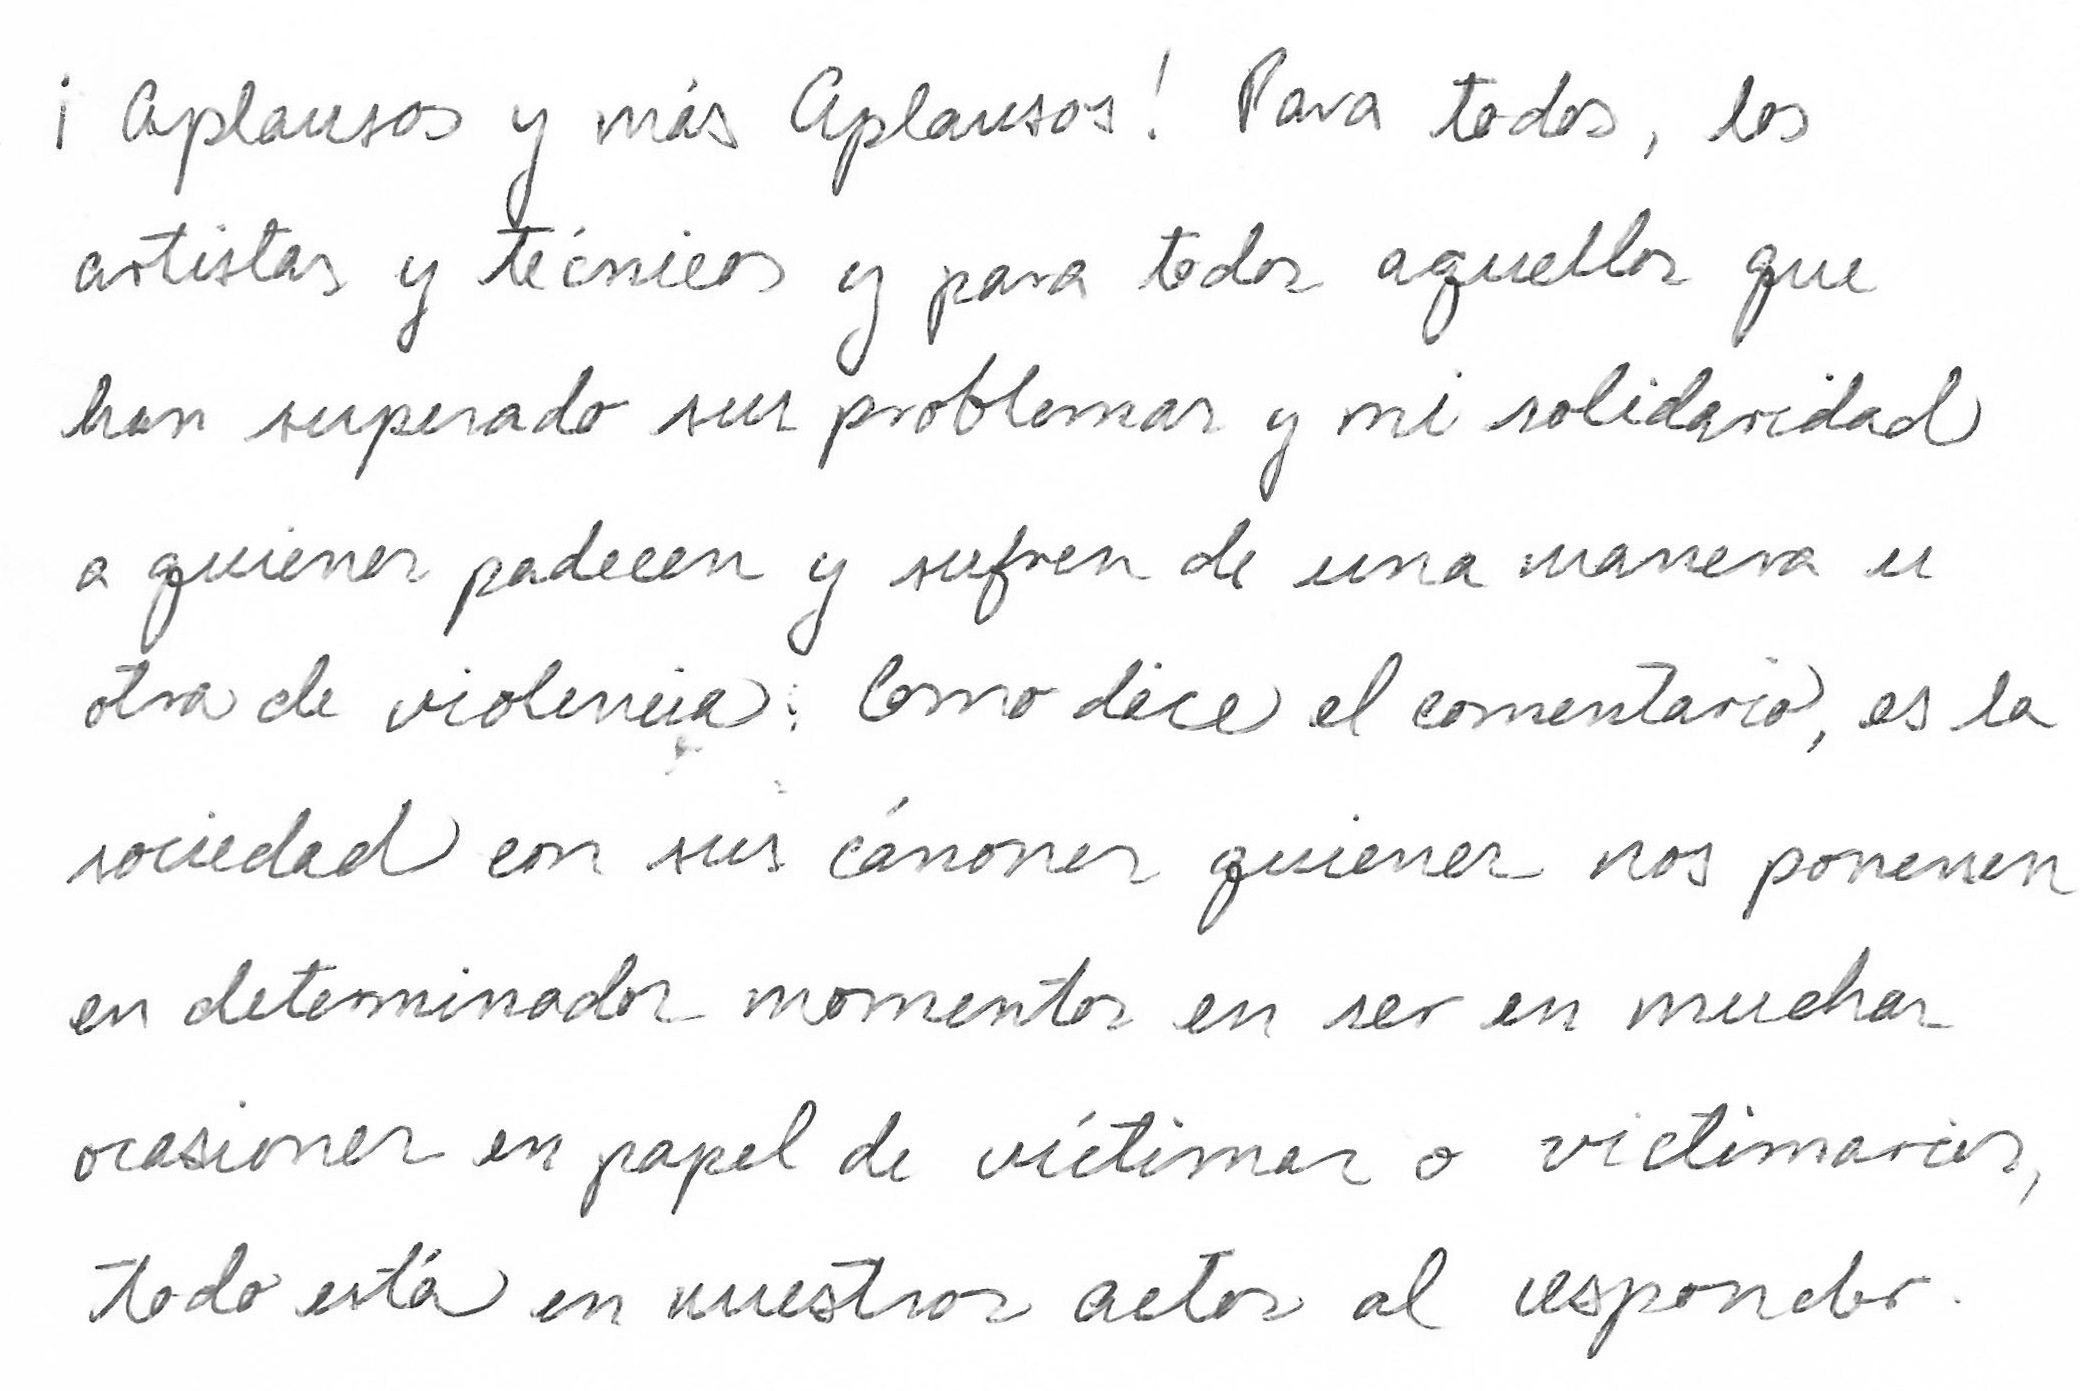 ¡ Aplausos y más Aplausos! Para todos, los
artistas y técnicos y para todos aquellos que
han superado sus problemas y mi solidaridad
a quienes padecen y sufren de una manera u
otra de violencia: Como dice el comentario, es la
sociedad con sus cánones quienes nos ponenen
en determinados momentos en ser en muchas
ocasiones en papel de víctimas o victimarios,
todo está en nuestros actos al responder.